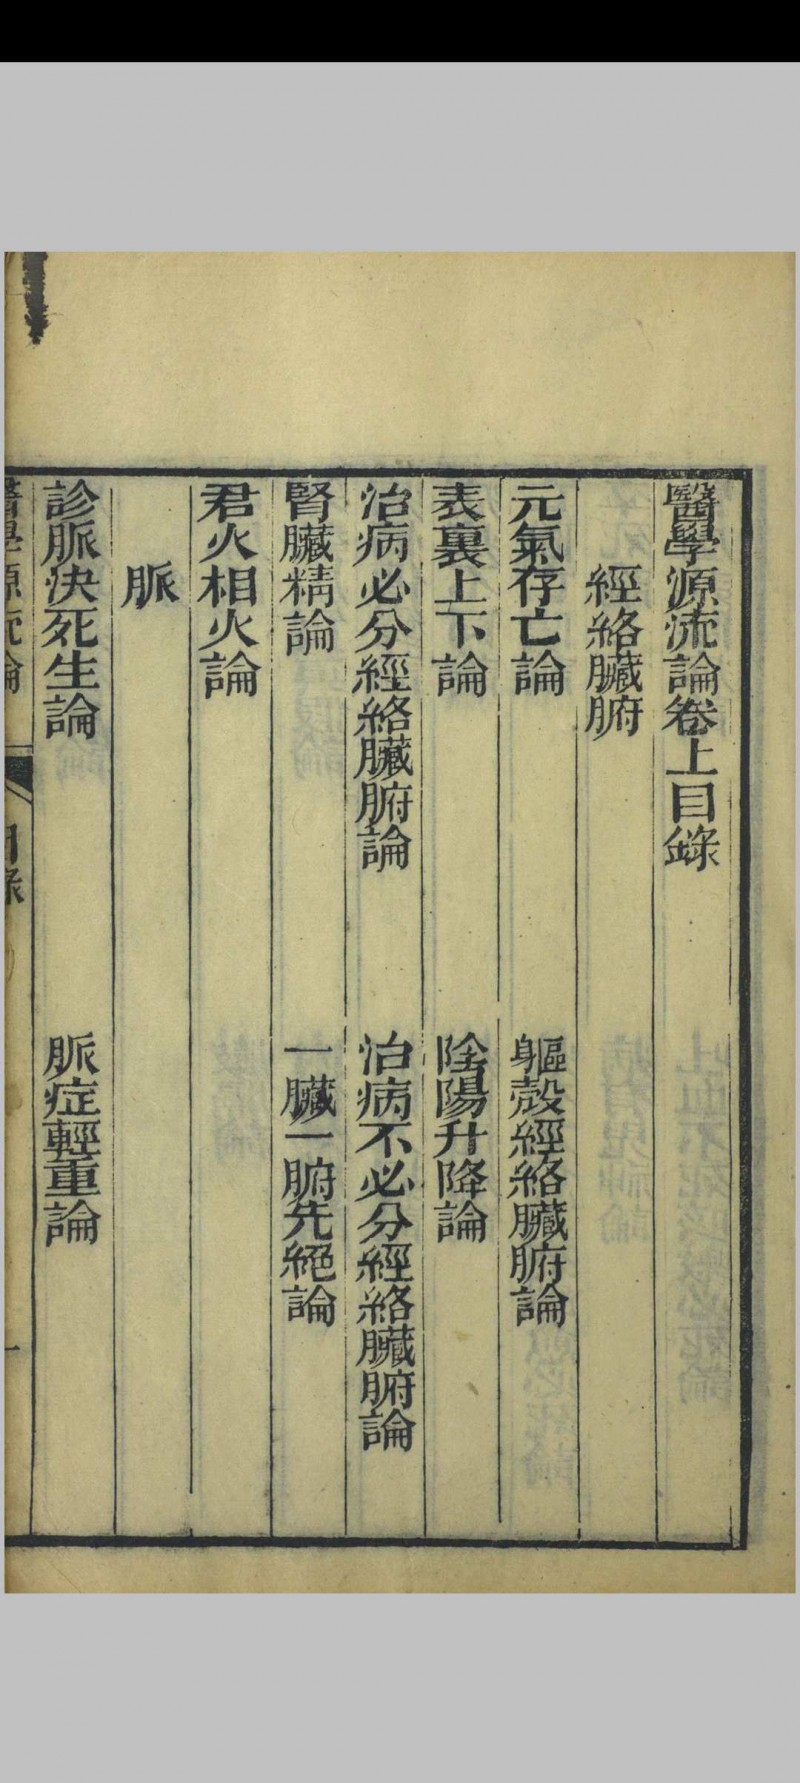 醫學源流論卷上目錄
經絡臟腑
元氣存亡論 軀殼經絡臟腑論
表裏上下論 陰陽升降論
治病必分經絡臟腑論 治病不必分經絡臟腑論
腎臟精論 一臟一腑先絕論
君火相火論
脈
診脈決死生論 脈症輕重論
醫學源流論 目錄 一